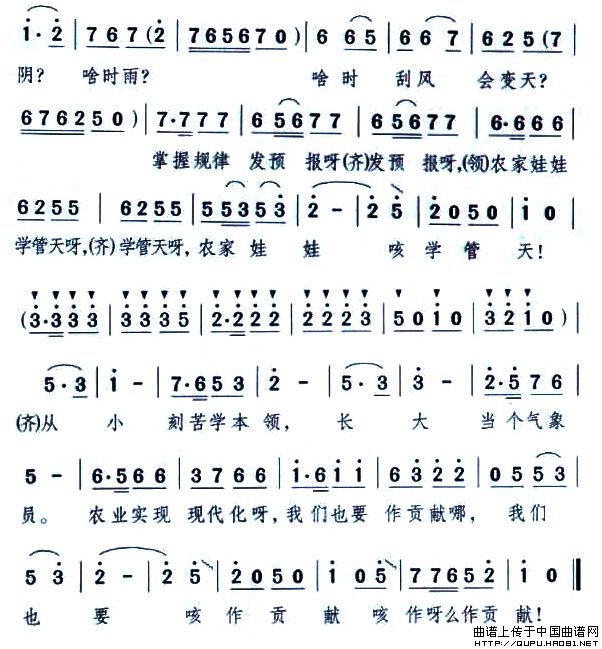 1·2 | 767(2 | 765670) | 6 65 | 66 7 | 625(7
阴? 啥时雨? 啥时 刮风 会变天?
676250) | 7·777 | 65677 | 65677 | 6·666
掌握规律 发预 报呀(齐)发预 报呀,(领)农家娃娃
6255 | 6255 | 55353 | 2- | 2 5 | 2050 | 10
学管天呀,(齐)学管天呀,农家 娃 娃 咳 学 管 天!
(3·333 | 3335 | 2·222 | 2223 | 5010 | 3210)
5·3 | 1- | 7·653 | 2- | 5·3 | 3- | 2·576
(齐)从 小 刻苦学本 领, 长 大 当个气象
5- | 6·566 | 3766 | 1·611 | 6322 | 0553
员。 农业实现 现代化呀,我们也要 作贡献哪, 我们
5 3 | 2- | 2 5 | 2050 | 1 05 | 77652 | 10
也 要 咳 作 贡 献 咳 作呀么作贡 献!
曲谱上传于中国曲谱网
HTTP://QUPU.HAO81.NET